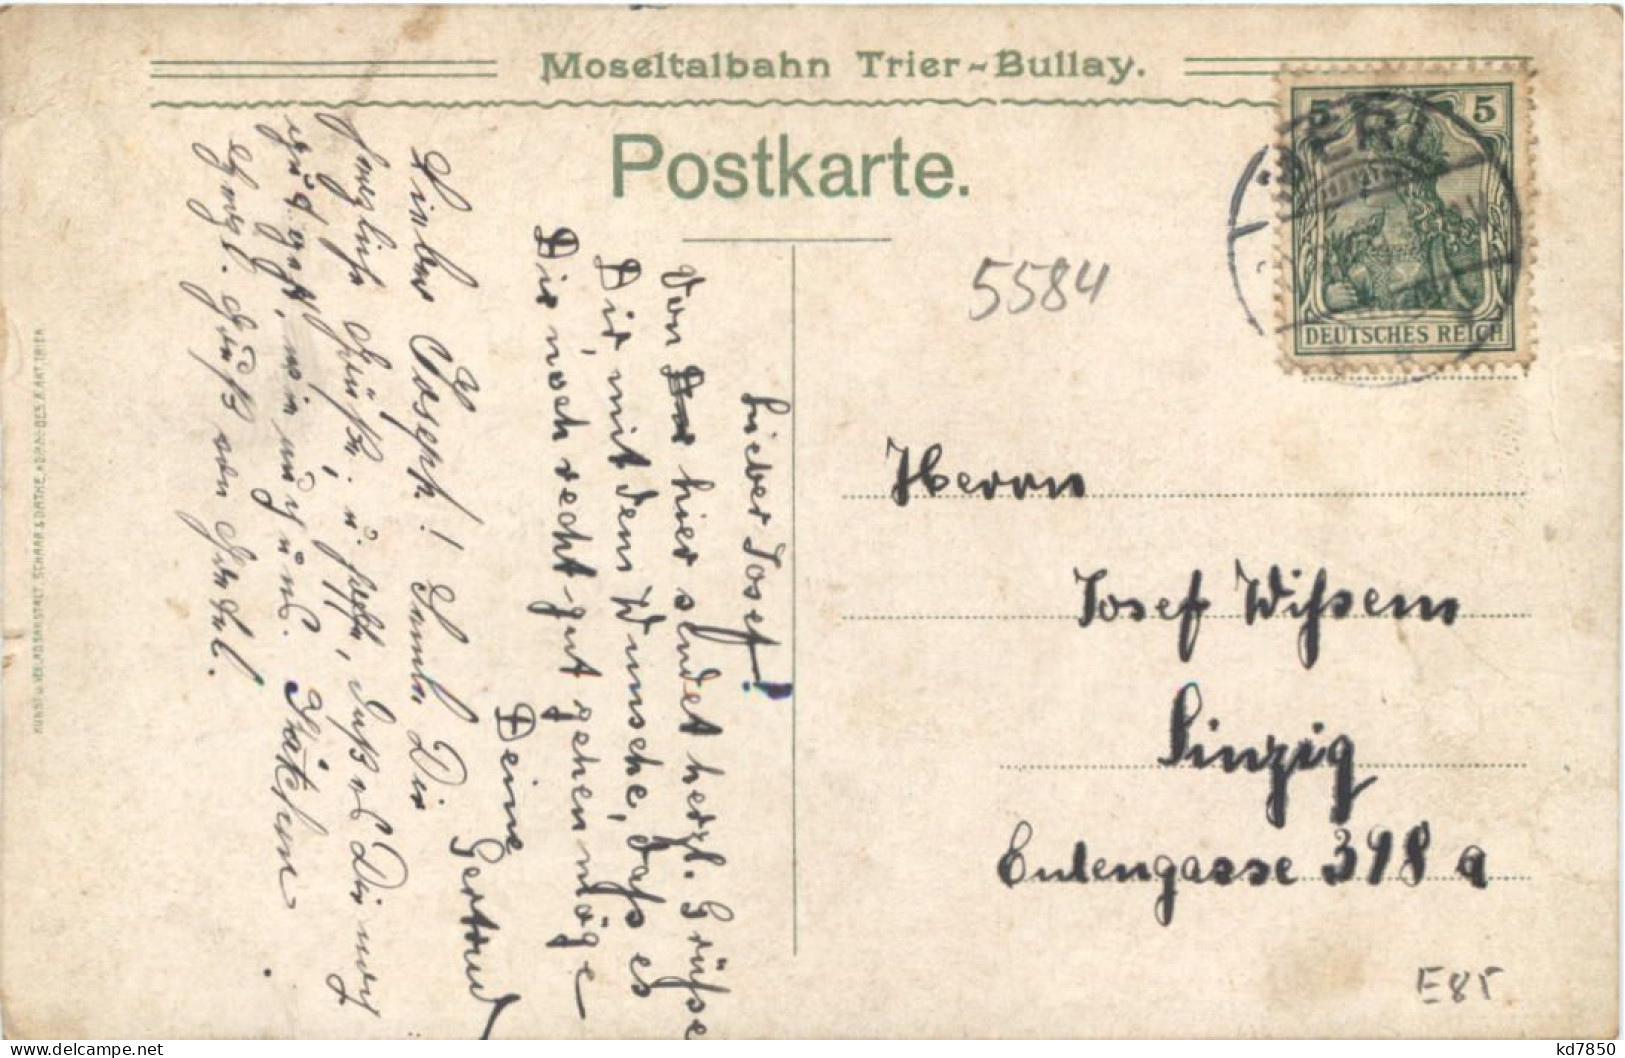 Moseltalbahn Trier-Bullay.
Postkarte.
5
5
DEUTSCHES REICH
BERL
5584
Herrn
Josef Wißsem
Sinzig
Eulengasse 398 a
E85
Lieber Josef!
Von hier sendet herzl. Grüsse
Dir, mit dem Wunsche, dass es
Dir noch recht gut gehen möge
Deine
Gertrud
Lieber Joseph! Sende Dir
herzliche Grüße, u. hoffe, daß es Dir noch
gut geht, wie auch uns. Käthen
Herzl. Gruß von
KUNST U. VERLAGSANSTALT, SCHAAR & DATHE, KOMM.-GES. A. AKT. TRIER
kd7850